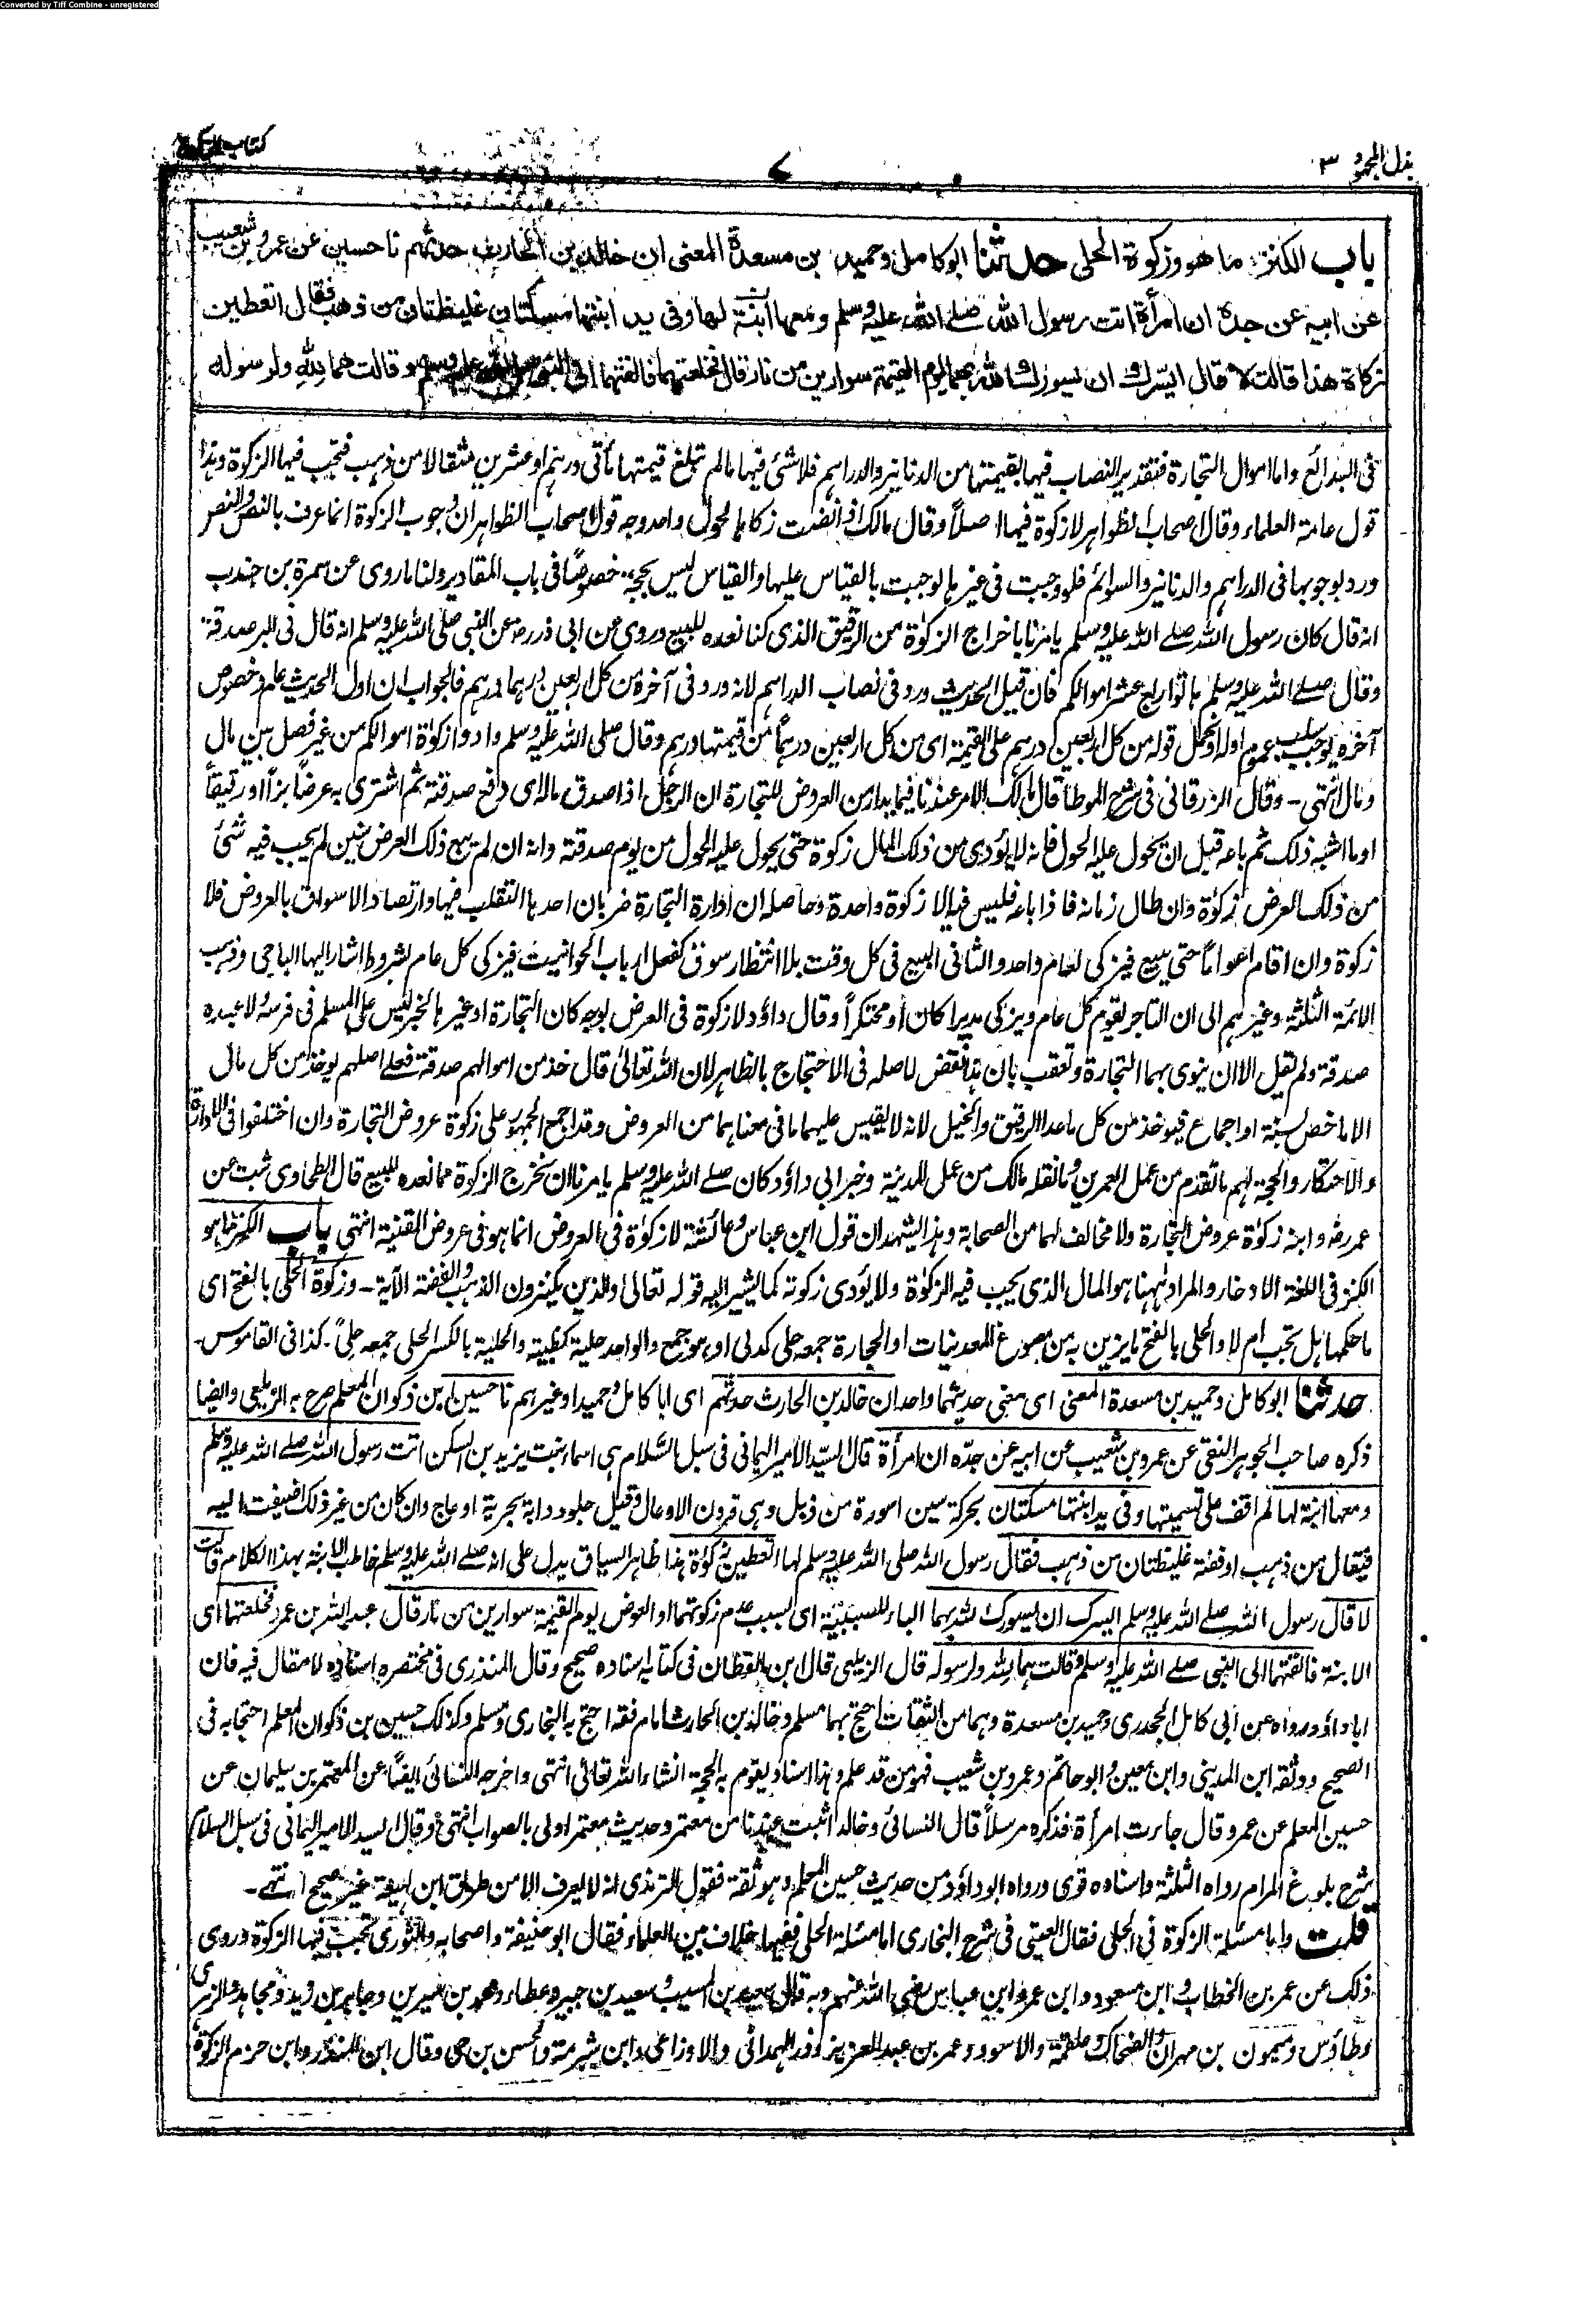 Converted by Tiff Combine - unregistered
بذل المجهود ٣
٧
كتاب الزكوة
باب الكنز ما هو وزكوة الحلى حدثنا ابو كامل وحميد بن مسعدة المعنى ان خالد بن الحارث حدثهم نا حسين عن عمرو بن شعيب
عن ابيه عن جده ان امرأة اتت رسول الله صلے الله عليه وسلم ومعها ابنة لها وفى يد ابنتها مسكتان غليظتان من ذهب فقال اتعطين
زكاة هذا قالت لا قال ايسرك ان يسورك الله بهما يوم القيمة سوارين من نار قال فخلعتهما فالقتهما الى النبى صلى الله عليه وسلم وقالت هما لله ولرسوله
فى البدائع واما اموال التجارة فتقدير النصاب فيها بقيمتها من الدنانير والدراهم فلا شئ فيها ما لم تبلغ قيمتها مأتى درهم او عشرين مثقالا من ذهب فتجب فيها الزكوة وهذا
قول عامة العلماء وقال اصحاب الظواهر لا زكوة فيها اصلاً وقال مالك اذا نضت زكاها لحول واحد وجه قول اصحاب الظواهر ان وجوب الزكوة انما عرف بالنص والنص
ورد بوجوبها فى الدراهم والدنانير والسوائم فلو وجبت فى غيرها لوجبت بالقياس عليها والقياس ليس بحجة خصوصًا فى باب المقادير ولنا ما روى عن سمرة بن جندب
انه قال كان رسول الله صلے الله عليه وسلم يامرنا باخراج الزكوة من الرقيق الذى كنا نعده للبيع وروى عن ابى ذر رضه عن النبى صلى الله عليه وسلم انه قال فى البر صدقة
وقال صلے الله عليه وسلم هاتوا ربع عشر اموالكم فان قيل الحديث ورد فى نصاب الدراهم لانه ورد فى آخره من كل اربعين درهما درهم فالجواب ان اول الحديث عام وخصوص
آخره يوجب سلب عموم اوله او نحمل قوله من كل اربعين درهم على القيمة اى من كل اربعين درهماً من قيمتها درهم وقال صلى الله عليه وسلم وادوا زكوة اموالكم من غير فصل بين مال
ومال انتهى - وقال الزرقانى فى شرح الموطا قال مالك الامر عندنا فيما يدار من العروض للتجارة ان الرجل اذا صدق ماله اى دفع صدقته ثم اشترى به عرضاً بزاً او رقيقاً
او ما اشبه ذلك ثم باعه قبل ان يحول عليه الحول فانه لا يؤدى من ذلك المال زكوة حتى يحول عليه الحول من يوم صدقته وانه ان لم يبع ذلك العرض سنين لم يجب فيه شئ
من ذلك العرض زكوة وان طال زمانه فاذا باعه فليس فيه الا زكوة واحدة وحاصله ان ادارة التجارة ضربان احدها التقلب فيها وارتصاد الاسواق بالعروض فلا
زكوة وان اقام اعواماً حتى يبيع فيزكى لعام واحد والثانى البيع فى كل وقت بلا انتظار سوق كفعل ارباب الحوانيت فيزكى كل عام بشروط اشار اليها الباجى وذهب
الائمة الثلثة وغيرهم الى ان التاجر يقوم كل عام ويزكى مديرا كان او محتكراً وقال داؤد لا زكوة فى العرض بوجه كان لتجارة او غيرها لخبر ليس على المسلم فى فرسه ولا عبده
صدقة ولم يقل الا ان ينوى بهما التجارة وتعقب بان هذا نقض لاصله فى الاحتجاج بالظاهر لان الله تعالى قال خذ من اموالهم صدقة فعلے اصلهم يوخذ من كل مال
الا ما خص بسنة او اجماع فيوخذ من كل ما عدا الرقيق والخيل لانه لا يقيس عليهما ما فى معناهما من العروض وقد اجمع الجمهور على زكوة عروض التجارة وان اختلفوا فى الادارة
والاحتكار والحجة لهم ما تقدم من عمل العمرين وما نقله مالك من عمل المدينة وخبر ابى داؤد كان صلے الله عليه وسلم يامرنا ان نخرج الزكوة مما نعده للبيع قال الطحاوى ثبت عن
عمر رضه وابنه زكوة عروض التجارة ولا مخالف لهما من الصحابة وهذا يشهد ان قول ابن عباس وعائشة لا زكوة فى العروض انما هو فى عروض القنية انتهى باب الكنز ما هو
الكنز فى اللغة الادخار والمراد ههنا هو المال الذى يجب فيه الزكوة ولا يؤدى زكوته كما يشير اليه قوله تعالى والذين يكنزون الذهب والفضة الآية - وزكوة الحلى بالفتح اى
ما حكمها هل تجب ام لا والحلى بالفتح ما يزين به من مصوغ المعدنيات او الحجارة جمعه حلى كدلى او هو جمع والواحد حلية كظبية والحلية بالكسر الحلى جمعه حلىً - كذا فى القاموس -
حدثنا ابو كامل وحميد بن مسعدة المعنى اى معنى حديثهما واحد ان خالد بن الحارث حدثهم اى ابا كامل وحميدا وغيرهم نا حسين ابن ذكوان المعلم صرح به الزيلعى وايضا
ذكره صاحب الجوهر النقى عن عمرو بن شعيب عن ابيه عن جدّه ان امرأة قال السيّد الامير اليمانى فى سبل السّلام هى اسماء بنت يزيد بن السكن اتت رسول الله صلے الله عليه وسلم
ومعها ابنة لها لم اقف على تسميتها وفى يد ابنتها مسكتان بحركة سين اسورة من ذبل وهى قرون الاوعال وقيل جلود دابة بحرية او عاج وان كان من غير ذلك اضيفت اليه
فيقال من ذهب او فضة غليظتان من ذهب فقال رسول الله صلى الله عليه وسلم لها اتعطين زكوة هذا ظاهر السياق يدل على انه صلے الله عليه وسلم خاطب الابنة بهذا الكلام قالت
لا قال رسول الله صلے الله عليه وسلم ايسرك ان يسورك الله بهما الباء للسببية اى بسبب عدم زكوتهما او العوض يوم القيمة سوارين من نار قال عبد الله بن عمرو فخلعتهما اى
الابنة فالقتهما الى النبى صلے الله عليه وسلم وقالت هما لله ولرسوله قال الزيلعى قال ابن القطان فى كتابه اسناده صحيح وقال المنذرى فى مختصره اسناده لا مقال فيه فان
ابا داؤد رواه عن ابى كامل الجحدرى وحميد بن مسعدة وهما من الثقات احتج بهما مسلم وخالد بن الحارث امام فقه احتج به البخارى ومسلم وكذلك حسين بن ذكوان المعلم احتجا به فى
الصحيح ووثقه ابن المدينى وابن معين وابو حاتم وعمرو بن شعيب فهو من قد علم وهذا اسناد يقوم به الحجة انشاء الله تعالى انتهى واخرجه النسائى ايضًا عن المعتمر بن سليمان عن
حسين المعلم عن عمرو قال جاءت امرأة فذكره مرسلاً قال النسائى وخالد اثبت عندنا من معتمر وحديث معتمر اولى بالصواب انتهى وقال السيد الامير اليمانى فى سبل السلام
شرح بلوغ المرام رواه الثلثة واسناده قوى ورواه ابو داؤد من حديث حسين المعلم وهو ثقة فقول الترمذى انه لا يعرف الا من طريق ابن لهيعة غير صحيح انتهے -
قلت واما مسئلة الزكوة فى الحلى فقال العينى فى شرح البخارى اما مسئلة الحلى ففيها خلاف بين العلماء فقال ابو حنيفة واصحابه والثورى تجب فيها الزكوة وروى
ذلك عن عمر بن الخطاب وابن مسعود وابن عمر وابن عباس رضى الله عنهم وبه قال سعيد بن المسيب وسعيد بن جبير وعطاء ومحمد بن سيرين وجابر بن زيد ومجاهد والزهرى
وطاؤس وميمون بن مهران والضحاك وعلقمة والاسود وعمر بن عبد العزيز وذر الهمدانى والاوزاعى وابن شبرمة والحسن بن حى وقال ابن المنذر وابن حزم الزكوة